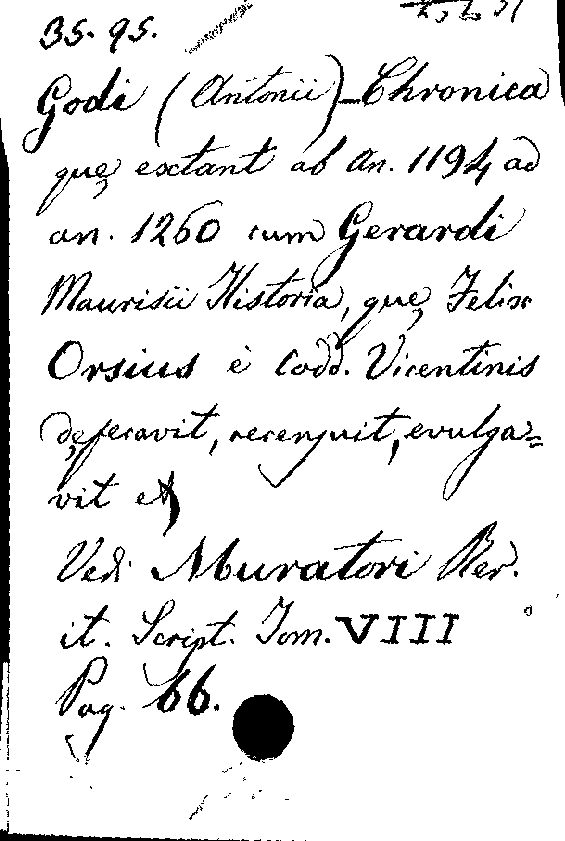 35. 95.
Godi (Antonii) - Chronica
quę extant ab An. 1194 ad
an. 1260 cum Gerardi
Maurisii Historia, quę Felix
Orsius è Codd. Vicentinis
defecavit, recensuit, evulga=
vit et
Vedi Muratori Rer.
it. Script. Tom. VIII
Pag. 66.